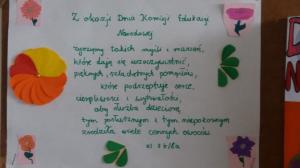 Z okazji Dnia Komisji Edukacji
Narodowej
życzymy takich myśli i marzeń,
które dają się urzeczywistnić,
pięknych, szlachetnych pomysłów,
które podszeptuje serce,
cierpliwości i wytrwałości,
aby służba dzieciom,
tym posłusznym i tym niepokornym
rodziła wiele cennych owoców